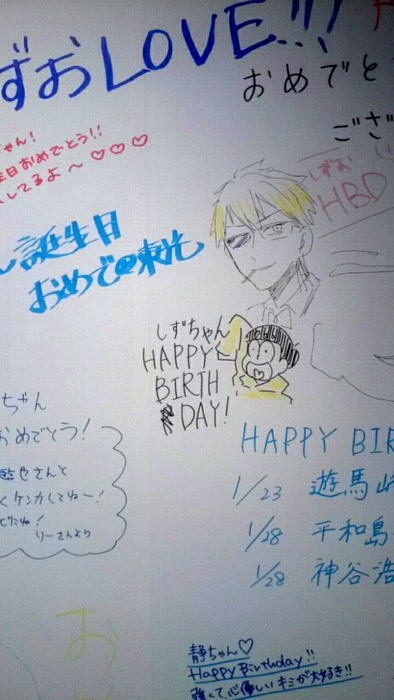 ずおLOVE!!!
おめでと
ござ
ゃん!
生日おめでとう!!
してるよ〜♡♡♡
しずお
HBD
誕生日
おめで
しずちゃん
HAPPY
BIRTH
DAY!
ちゃん
おめでとう!
くケンカしてねー!
りーさんより
HAPPY BIR
1/23 遊馬崎
1/28 平和島
1/28 神谷浩
お
静ちゃん♡
Happy Birthday!!
強くて心優しいキミが大好き!!